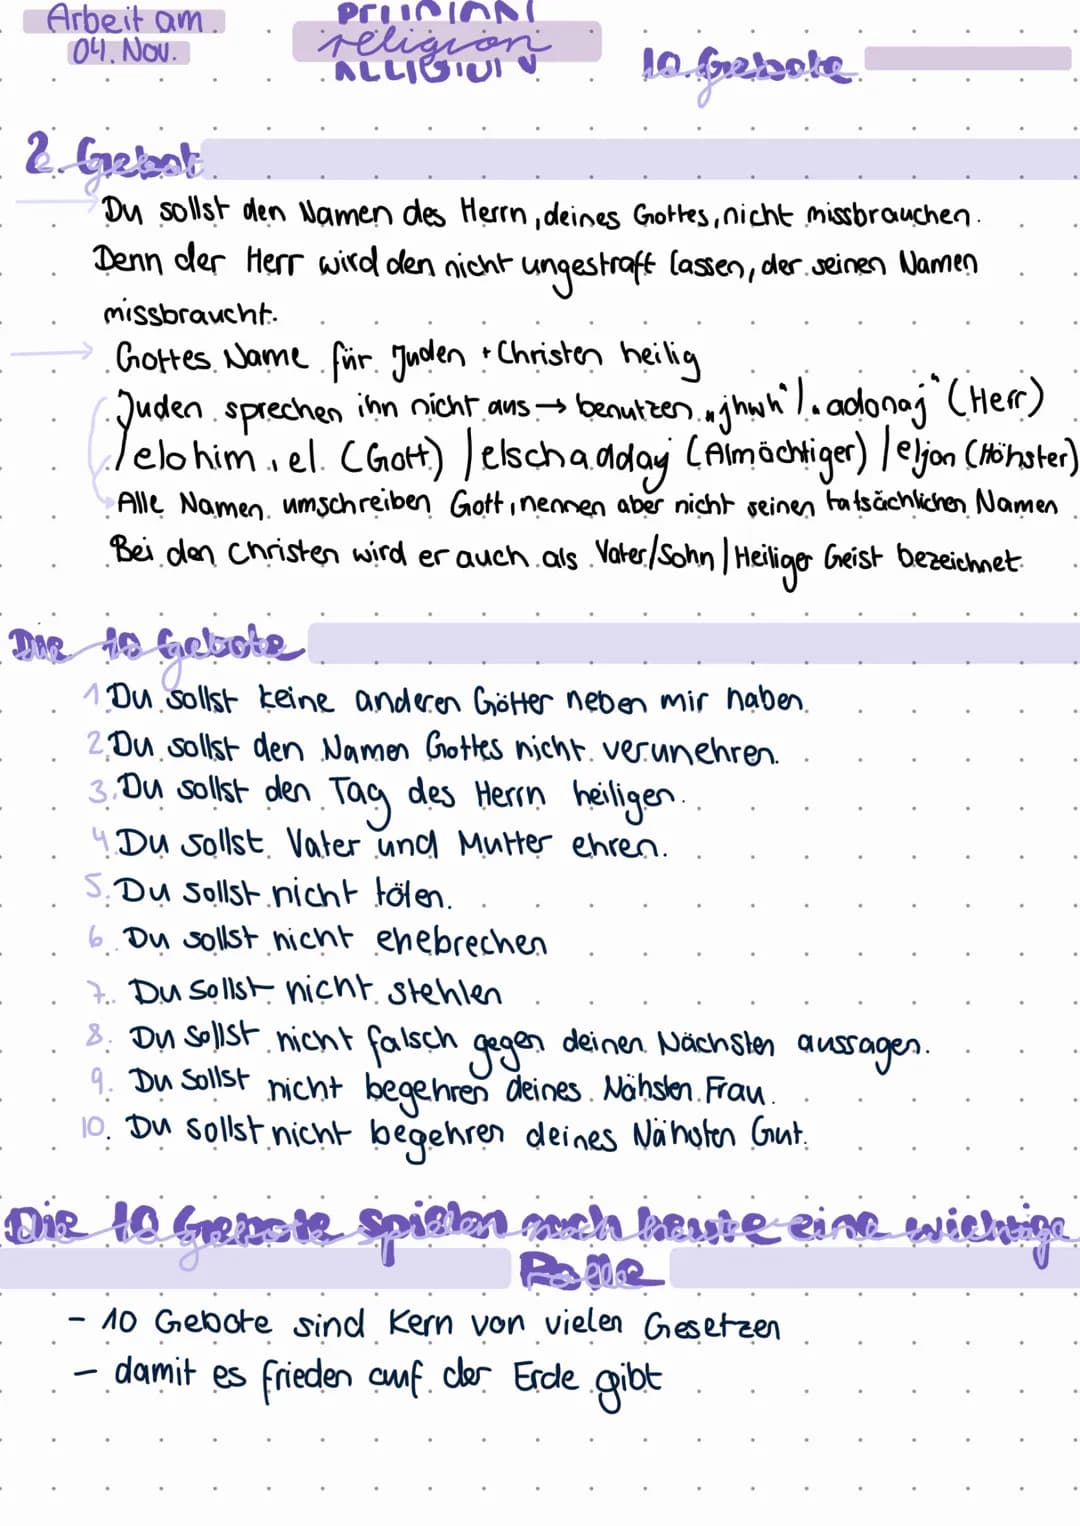 Arbeit am
04. Nov.
religion
10. Gebote
2. Gebot
Du sollst den Namen des Herrn, deines Gottes, nicht missbrauchen.
Denn der Herr wird den nicht ungestraft lassen, der seinen Namen
missbraucht.
Gottes Name für Juden + Christen heilig
Juden sprechen ihn nicht aus → benutzen „jhwh“/„adonaj“ (Herr)
/elohim, el (Gott) /elschadday (Almächtiger) /eljon (Höhster)
Alle Namen umschreiben Gott, nennen aber nicht seinen tatsächlichen Namen
Bei den Christen wird er auch als Vater/Sohn/Heiliger Geist bezeichnet
Die 10 Gebote
1 Du sollst keine anderen Götter neben mir haben.
2. Du sollst den Namen Gottes nicht verunehren.
3. Du sollst den Tag des Herrn heiligen.
4 Du sollst Vater und Mutter ehren.
5. Du sollst nicht töten.
6. Du sollst nicht ehebrechen
7. Du sollst nicht stehlen
8. Du sollst nicht falsch gegen deinen Nächsten aussagen.
9. Du sollst nicht begehren deines Nähsten Frau.
10. Du sollst nicht begehren deines Nähsten Gut.
Die 10 Gebote spielen auch heute eine wichtige
Rolle
- 10 Gebote sind Kern von vielen Gesetzen
- damit es frieden auf der Erde gibt